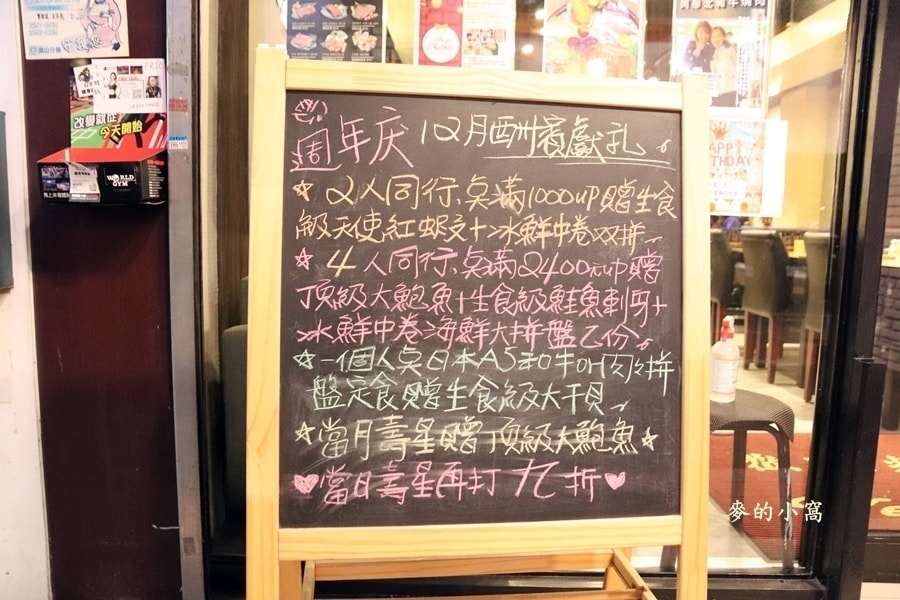 週年庆 12月酬賓獻礼
☆ 2人同行、点滿1000up贈生食
級天使紅蝦3支+冰鮮中卷双拼
☆ 4人同行、点滿2400元up贈
頂級大鮑魚+生食級鮭魚刺身+
冰鮮中卷海鮮大拼盤乙份
☆ 一個人点日本A5和牛or肉肉拼
盤定食贈生食級大干貝
☆當月壽星贈頂級大鮑魚☆
♥當月壽星再打九折♥
改變就從
今天開始
WORLD
GYM
HAPPY
BIRTHDAY
麥的小窩